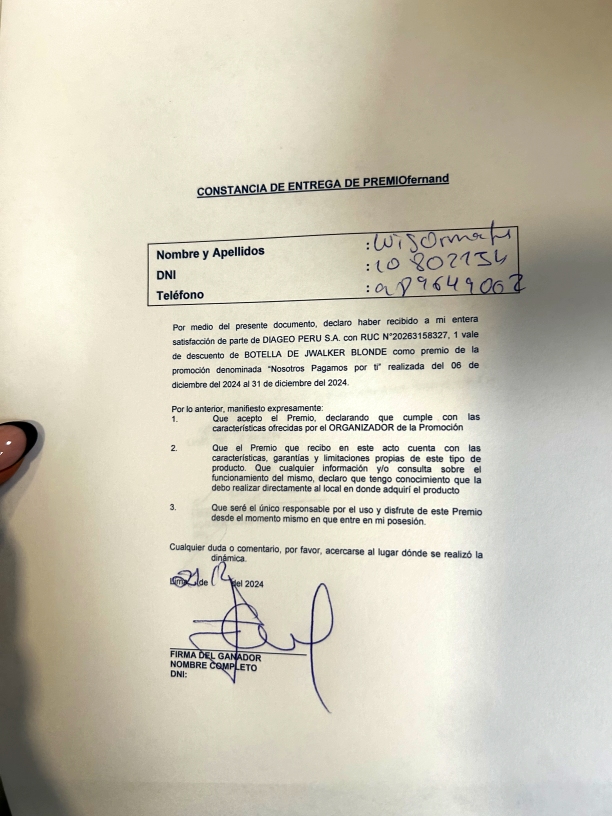 CONSTANCIA DE ENTREGA DE PREMIOfernand
Nombre y Apellidos :
DNI : 10802154
Teléfono :
Por medio del presente documento, declaro haber recibido a mi entera
satisfacción de parte de DIAGEO PERU S.A. con RUC N°20263158327, 1 vale
de descuento de BOTELLA DE JWALKER BLONDE como premio de la
promoción denominada "Nosotros Pagamos por ti" realizada del 06 de
diciembre del 2024 al 31 de diciembre del 2024.
Por lo anterior, manifiesto expresamente:
1. Que acepto el Premio, declarando que cumple con las
características ofrecidas por el ORGANIZADOR de la Promoción
2. Que el Premio que recibo en este acto cuenta con las
características, garantías y limitaciones propias de este tipo de
producto. Que cualquier información y/o consulta sobre el
funcionamiento del mismo, declaro que tengo conocimiento que la
debo realizar directamente al local en donde adquirí el producto
3. Que seré el único responsable por el uso y disfrute de este Premio
desde el momento mismo en que entre en mi posesión.
Cualquier duda o comentario, por favor, acercarse al lugar dónde se realizó la
dinámica.
de 12 del 2024
FIRMA DEL GANADOR
NOMBRE COMPLETO
DNI: